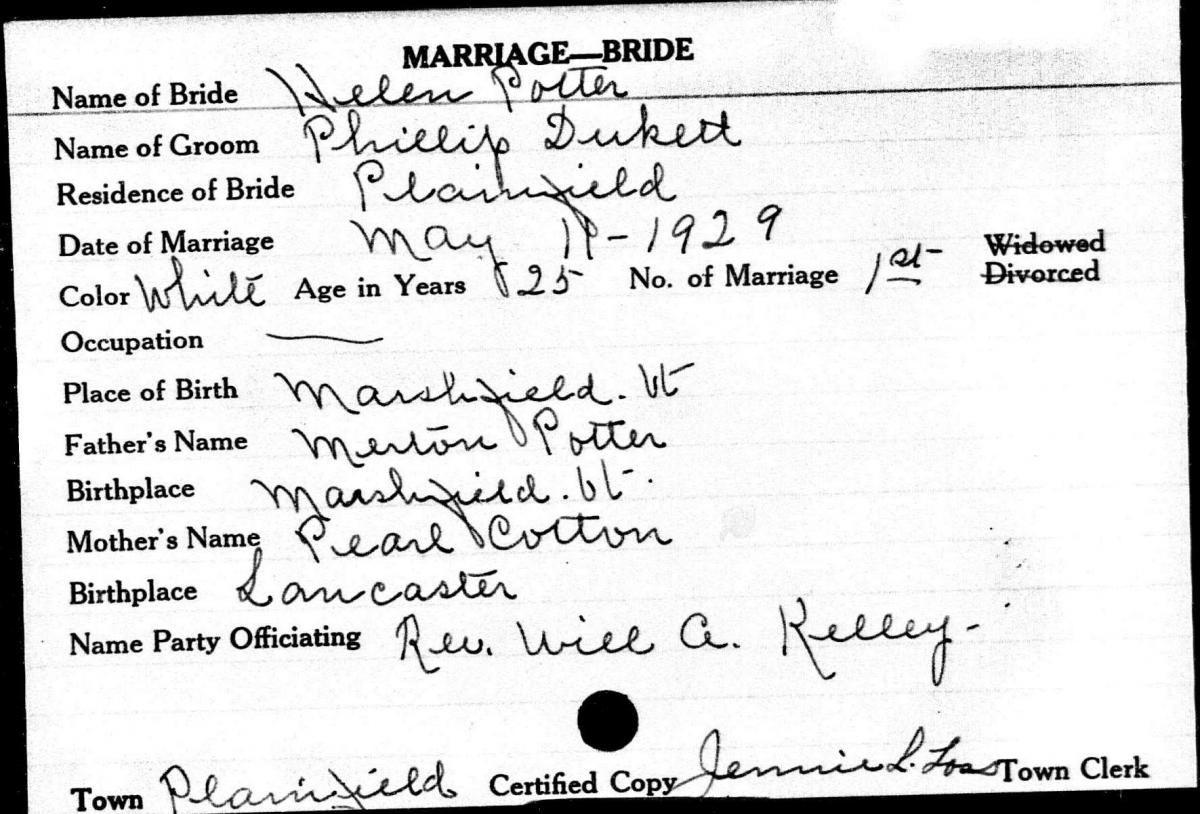 MARRIAGE—BRIDE
Name of Bride Helen Potter
Name of Groom Phillip Dukett
Residence of Bride Plainfield
Date of Marriage May 18-1929
Color White Age in Years 25 No. of Marriage 1st Widowed
Divorced
Occupation —
Place of Birth Marshfield. Vt
Father's Name Merton Potter
Birthplace Marshfield. Vt.
Mother's Name Pearl Cotton
Birthplace Lancaster
Name Party Officiating Rev. Will A. Kelley-
Town Plainfield Certified Copy Jennie L. Town Clerk